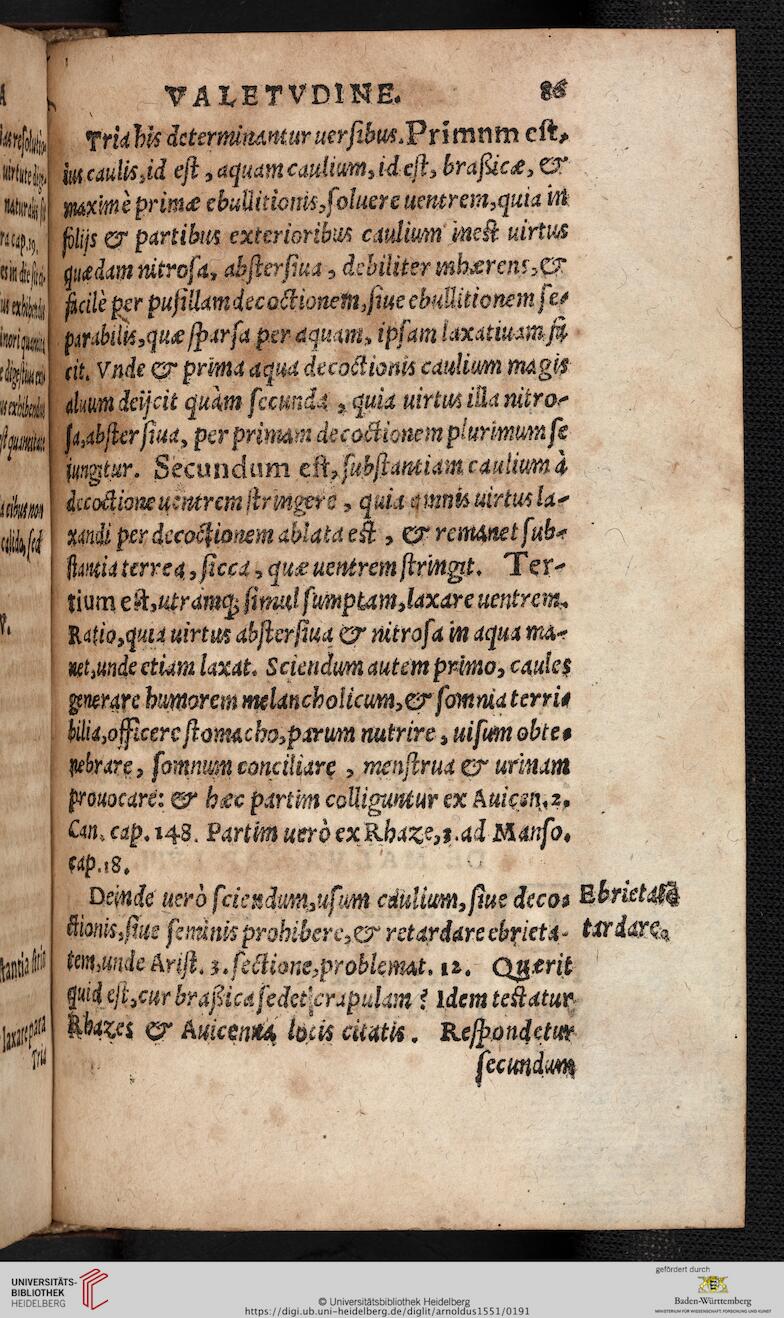 VALETVDINE. 86
Tria his determinantur uersibus. Primnm est,
ius caulis, id est, aquam caulium, id est, braßicæ, &
maximè primæ ebullitionis, soluere uentrem, quia in
folijs & partibus exterioribus caulium inest uirtus
quædam nitrosa, abstersiua, debiliter inhærens, &
facilè per pusillam decoctionem, siue ebullitionem se-
parabilis, quæ sparsa per aquam, ipsam laxatiuam fa
cit. Vnde & prima aqua decoctionis caulium magis
aluum deijcit quàm secunda, quia uirtus illa nitro-
sa, abstersiua, per primam decoctionem plurimum se
iungitur. Secundum est, substantiam caulium à
decoctione uentrem stringere, quia omnis uirtus la-
xandi per decoctionem ablata est, & remanet sub-
stantia terrea, sicca, quæ uentrem stringit. Ter-
tium est, utramq; simul sumptam, laxare uentrem.
Ratio, quia uirtus abstersiua & nitrosa in aqua ma-
net, unde etiam laxat. Sciendum autem primo, caules
generare humorem melancholicum, & somnia terri-
bilia, officere stomacho, parum nutrire, uisum obte-
nebrare, somnum conciliare, menstrua & urinam
prouocare: & hæc partim colliguntur ex Auicen. 2.
Can. cap. 148. Partim uerò ex Rhaze, 3. ad Manso.
cap. 18.
Deinde uerò sciendum, usum caulium, siue deco-
ctionis, siue seminis prohibere, & retardare ebrieta-
tem, unde Arist. 3. sectione, problemat. 12. Quærit
quid est, cur braßica sedet crapulam? Idem testatur
Rhazes & Auicenna locis citatis. Respondetur
secundum
Ebrietatē
tardare.
UNIVERSITÄTS-
BIBLIOTHEK
HEIDELBERG
© Universitätsbibliothek Heidelberg
https://digi.ub.uni-heidelberg.de/diglit/arnoldus1551/0191
gefördert durch
Baden-Württemberg
MINISTERIUM FÜR WISSENSCHAFT, FORSCHUNG UND KUNST